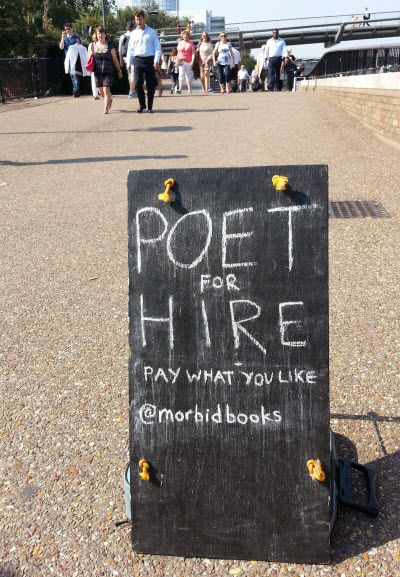 POET
FOR
HIRE
PAY WHAT YOU LIKE
@morbidbooks